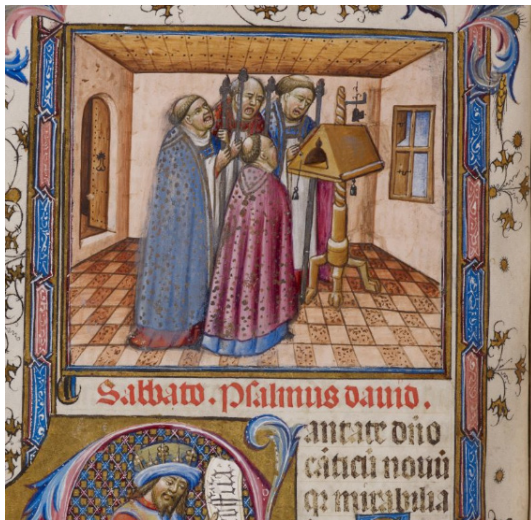 Sabbato. Psalmus dauid.
antate dño
cãticũ nouũ
qr mirabilia